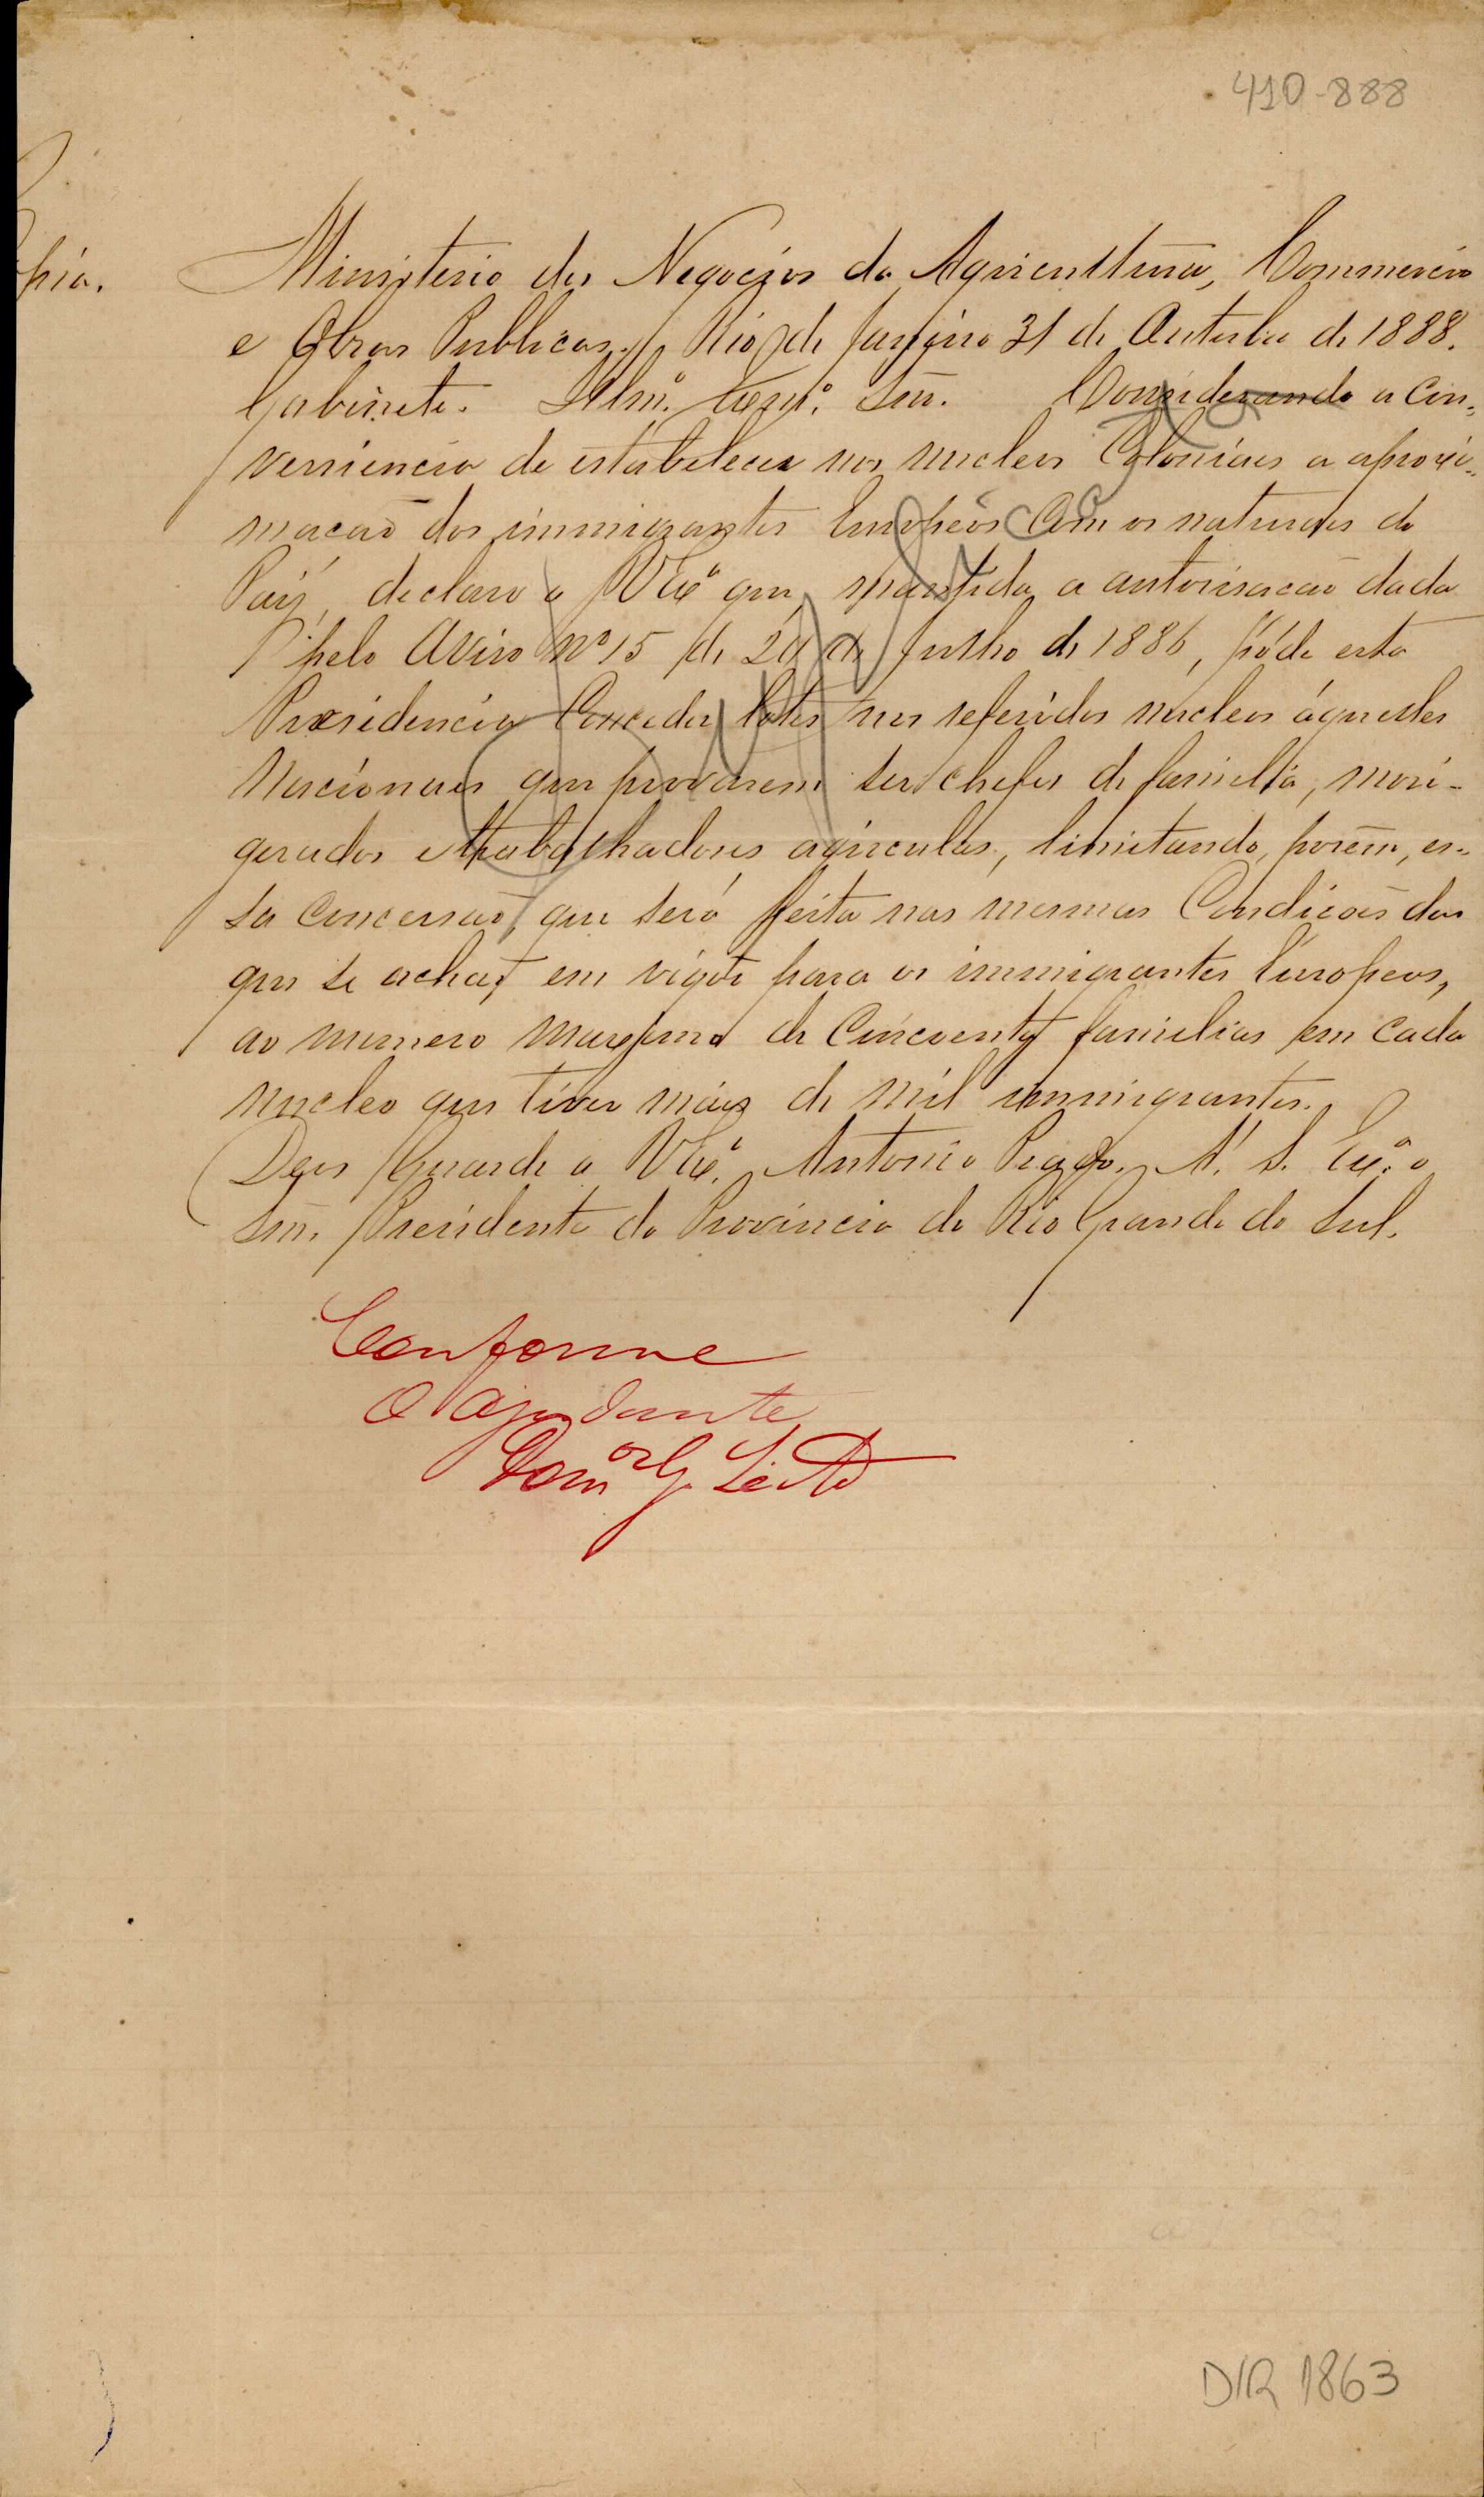 410-888
pia.
Ministerio dos Negocios da Agricultura, Commercio
e Obras Publicas. Rio de Janeiro 31 de Outubro de 1888.
Gabinete. Illmº. Exmº. Snr. Considerando a con-
veniencia de estabelecer nos nucleos Coloniaes a aproxi-
mação dos immigrantes Europeos Com os naturaes do
Paiz, declaro a VExª que, mantida a autorisação dada
pelo Aviso Nº 15 de de Julho de 1886, póde esta
Presidencia Conceder lotes nos referidos nucleos áquelles
Nacionaes que provarem ser chefes de familia, mori-
gerados e trabalhadores agriculas, limitando, porém, es-
sa concessão, que será feita nas mesmas Condições das
que se achaõ em vigor para os immigrantes Europeos,
ao numero maximo de Cincoenta familias em cada
nucleo que tiver mais de mil immigrantes.
Deos Guarde a VExª. Antonio Prado. A. S. Exª. o
Snr. Presidente da Provincia do Rio Grande do Sul.
Conforme
O Ajudante
Domos G. Leite
DIR 1863